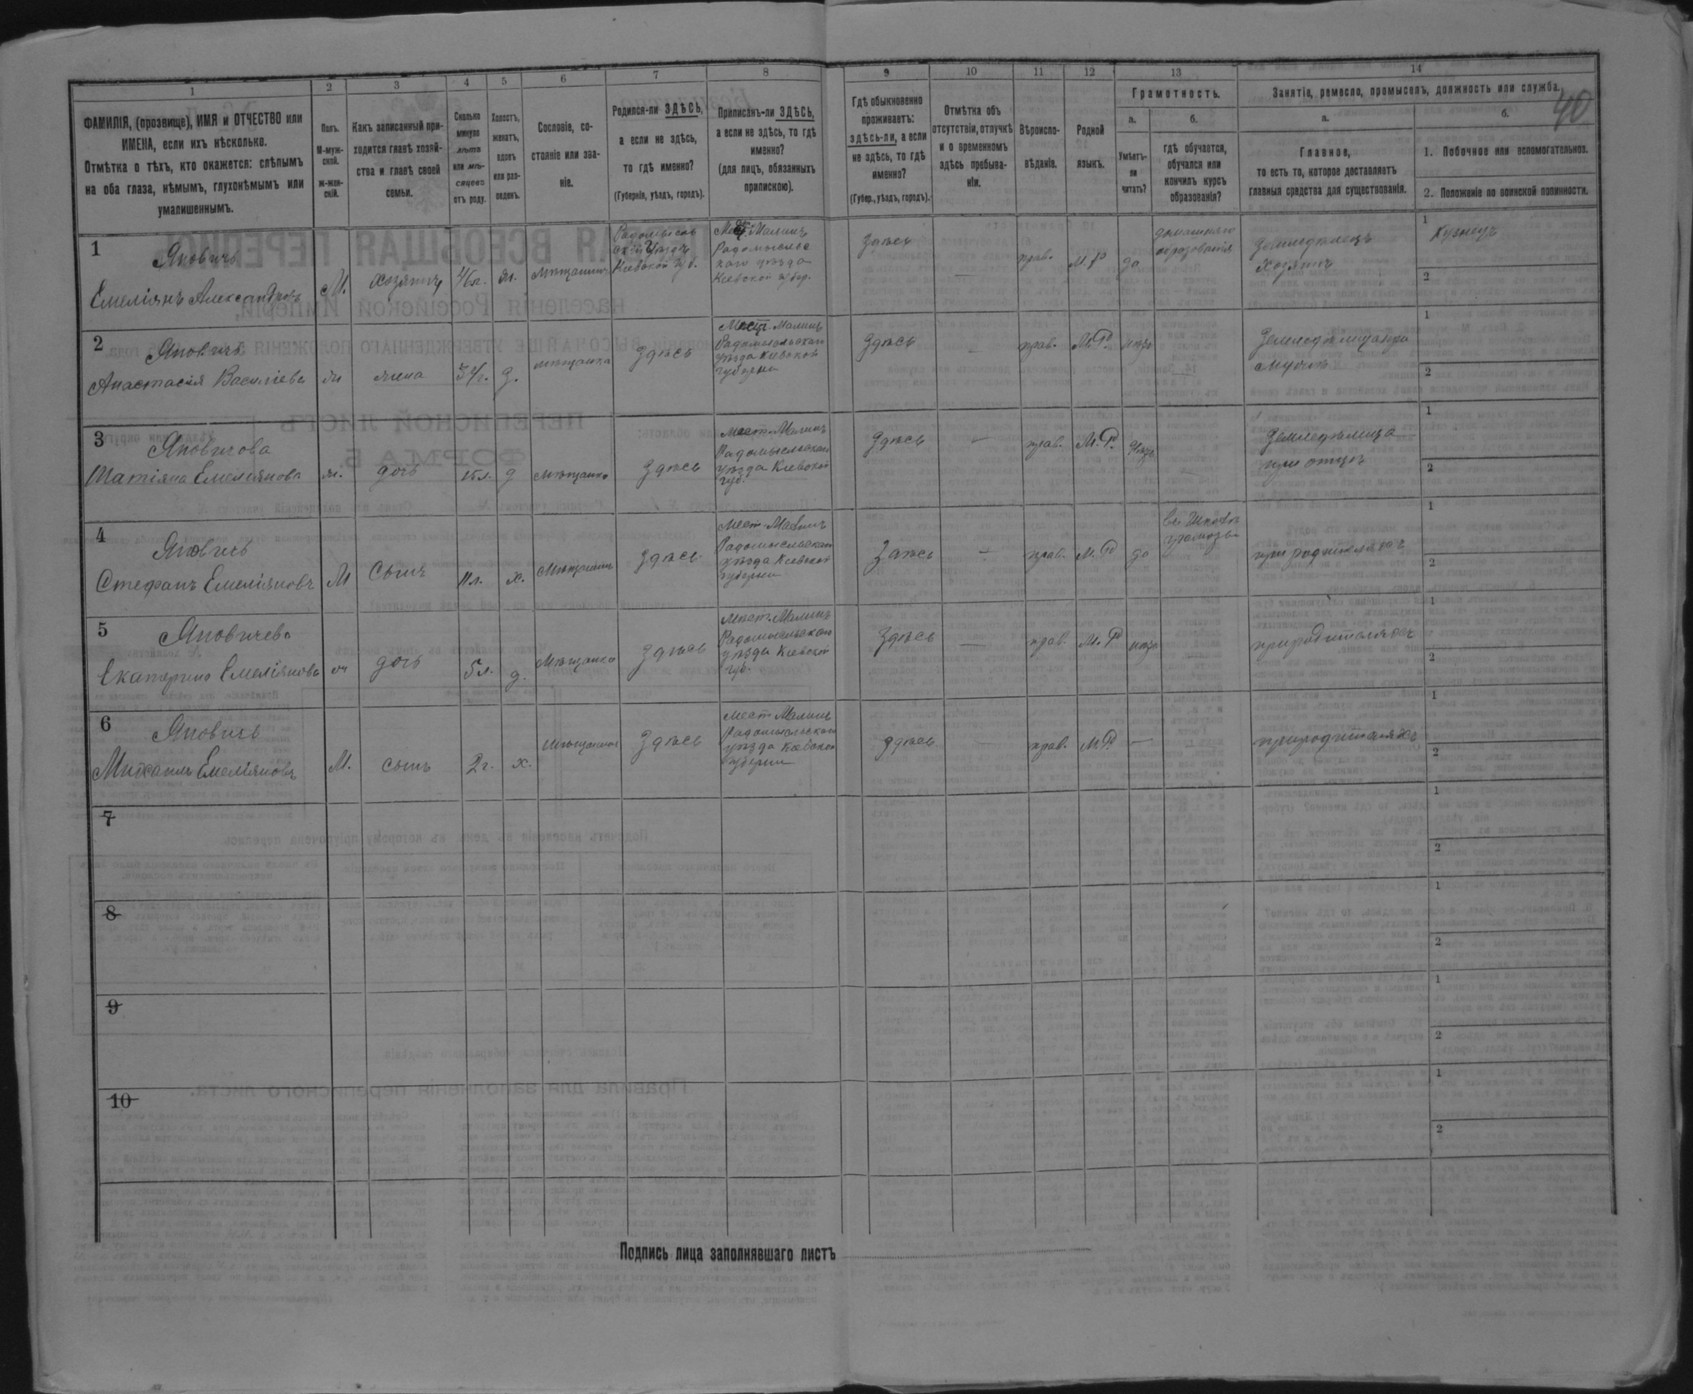 40
1 2 3 4 5 6 7 8 9 10 11 12 13 14
ФАМИЛІЯ, (прозвище), ИМЯ и ОТЧЕСТВО или
ИМЕНА, если ихъ нѣсколько.
Отмѣтка о тѣхъ, кто окажется: слѣпымъ
на оба глаза, нѣмымъ, глухонѣмымъ или
умалишеннымъ.
Полъ.
М-муж-
ской.
ж-жен-
скій.
Какъ записанный при-
ходится главѣ хозяй-
ства и главѣ своей
семьи.
Сколько
минуло
лѣтъ
или мѣ-
сяцевъ
отъ роду.
Холостъ,
женатъ,
вдовъ
или раз-
веденъ.
Сословіе, со-
стояніе или зва-
ніе.
Родился-ли ЗДѢСЬ,
а если не здѣсь,
то гдѣ именно?
(Губернія, уѣздъ, городъ).
Приписанъ-ли ЗДѢСЬ,
а если не здѣсь, то гдѣ
именно?
(для лицъ, обязанныхъ
припискою).
Гдѣ обыкновенно
проживаетъ:
здѣсь-ли, а если
не здѣсь, то гдѣ
именно?
(Губер., уѣздъ, городъ).
Отмѣтка объ
отсутствіи, отлучкѣ
и о временномъ
здѣсь пребыва-
ніи.
Вѣроиспо-
вѣданіе.
Родной
языкъ.
Грамотность.
а.
Умѣетъ-
ли
читать?
б.
гдѣ обучается,
обучался или
кончилъ курсъ
образованія?
Занятіе, ремесло, промыселъ, должность или служба.
а.
Главное,
то есть то, которое доставляетъ
главныя средства для существованія.
б.
1. Побочное или вспомогательное.
2. Положеніе по воинской повинности.
1
Яновичъ
Емеліянъ Александровъ
М.
хозяинъ
46л.
ж.
мѣщанинъ
Радомысль
скій Уѣздъ
Кіевской губ.
Мест Малинъ
Радомысльс
каго уѣзда
Кіевской губер.
здѣсь
—
прав.
М Р
да
домашняго
образованія
Земледѣлецъ
хозяинъ
1 Кузнецъ
2
2
Яновичъ
Анастасія Василіева
ж
жена
34г.
з.
мѣщанка
здѣсь
Мест. Малинъ
Радомысльскаго
уѣзда Кіевской
губерни
здѣсь
—
прав.
М.Р.
нѣтъ
—
1
2
3
Яновичова
Татіяна Емеліянова
ж.
дочь
15л.
д
мѣщанка
здѣсь
Мест. Малинъ
Радомысльскаго
уѣзда Кіевской
губ.
здѣсь
—
прав.
М.Р.
нѣтъ
—
Земледѣлица
при отцѣ
1
2
4
Яновичъ
Стефанъ Емеліяновъ
М
сынъ
11л.
х.
Мѣщанинъ
здѣсь
Мест Малинъ
Радомысльскаго
уѣзда Кіевской
губернии
здѣсь
—
прав.
М.Р
да
при родителяхъ
1
2
5
Яновичева
Екатерина Емеліянова
ж
дочь
5л.
д.
Мѣщанка
здѣсь
Мест Малинъ
Радомысльскаго
уѣзда Кіевской
губ.
здѣсь
—
прав.
М.Р
нѣтъ
—
природителяхъ
1
2
6
Яновичъ
Михаилъ Емеліяновъ
М.
сынъ
2г.
х.
Мѣщанинъ
здѣсь
Мест Малинъ
Радомысльскаго
уѣзда Кіевской
губернии
здѣсь
—
прав.
М.Р.
—
природителяхъ
1
2
7
1
2
8
1
2
9
1
2
10
1
2
Подпись лица заполнявшаго листъ